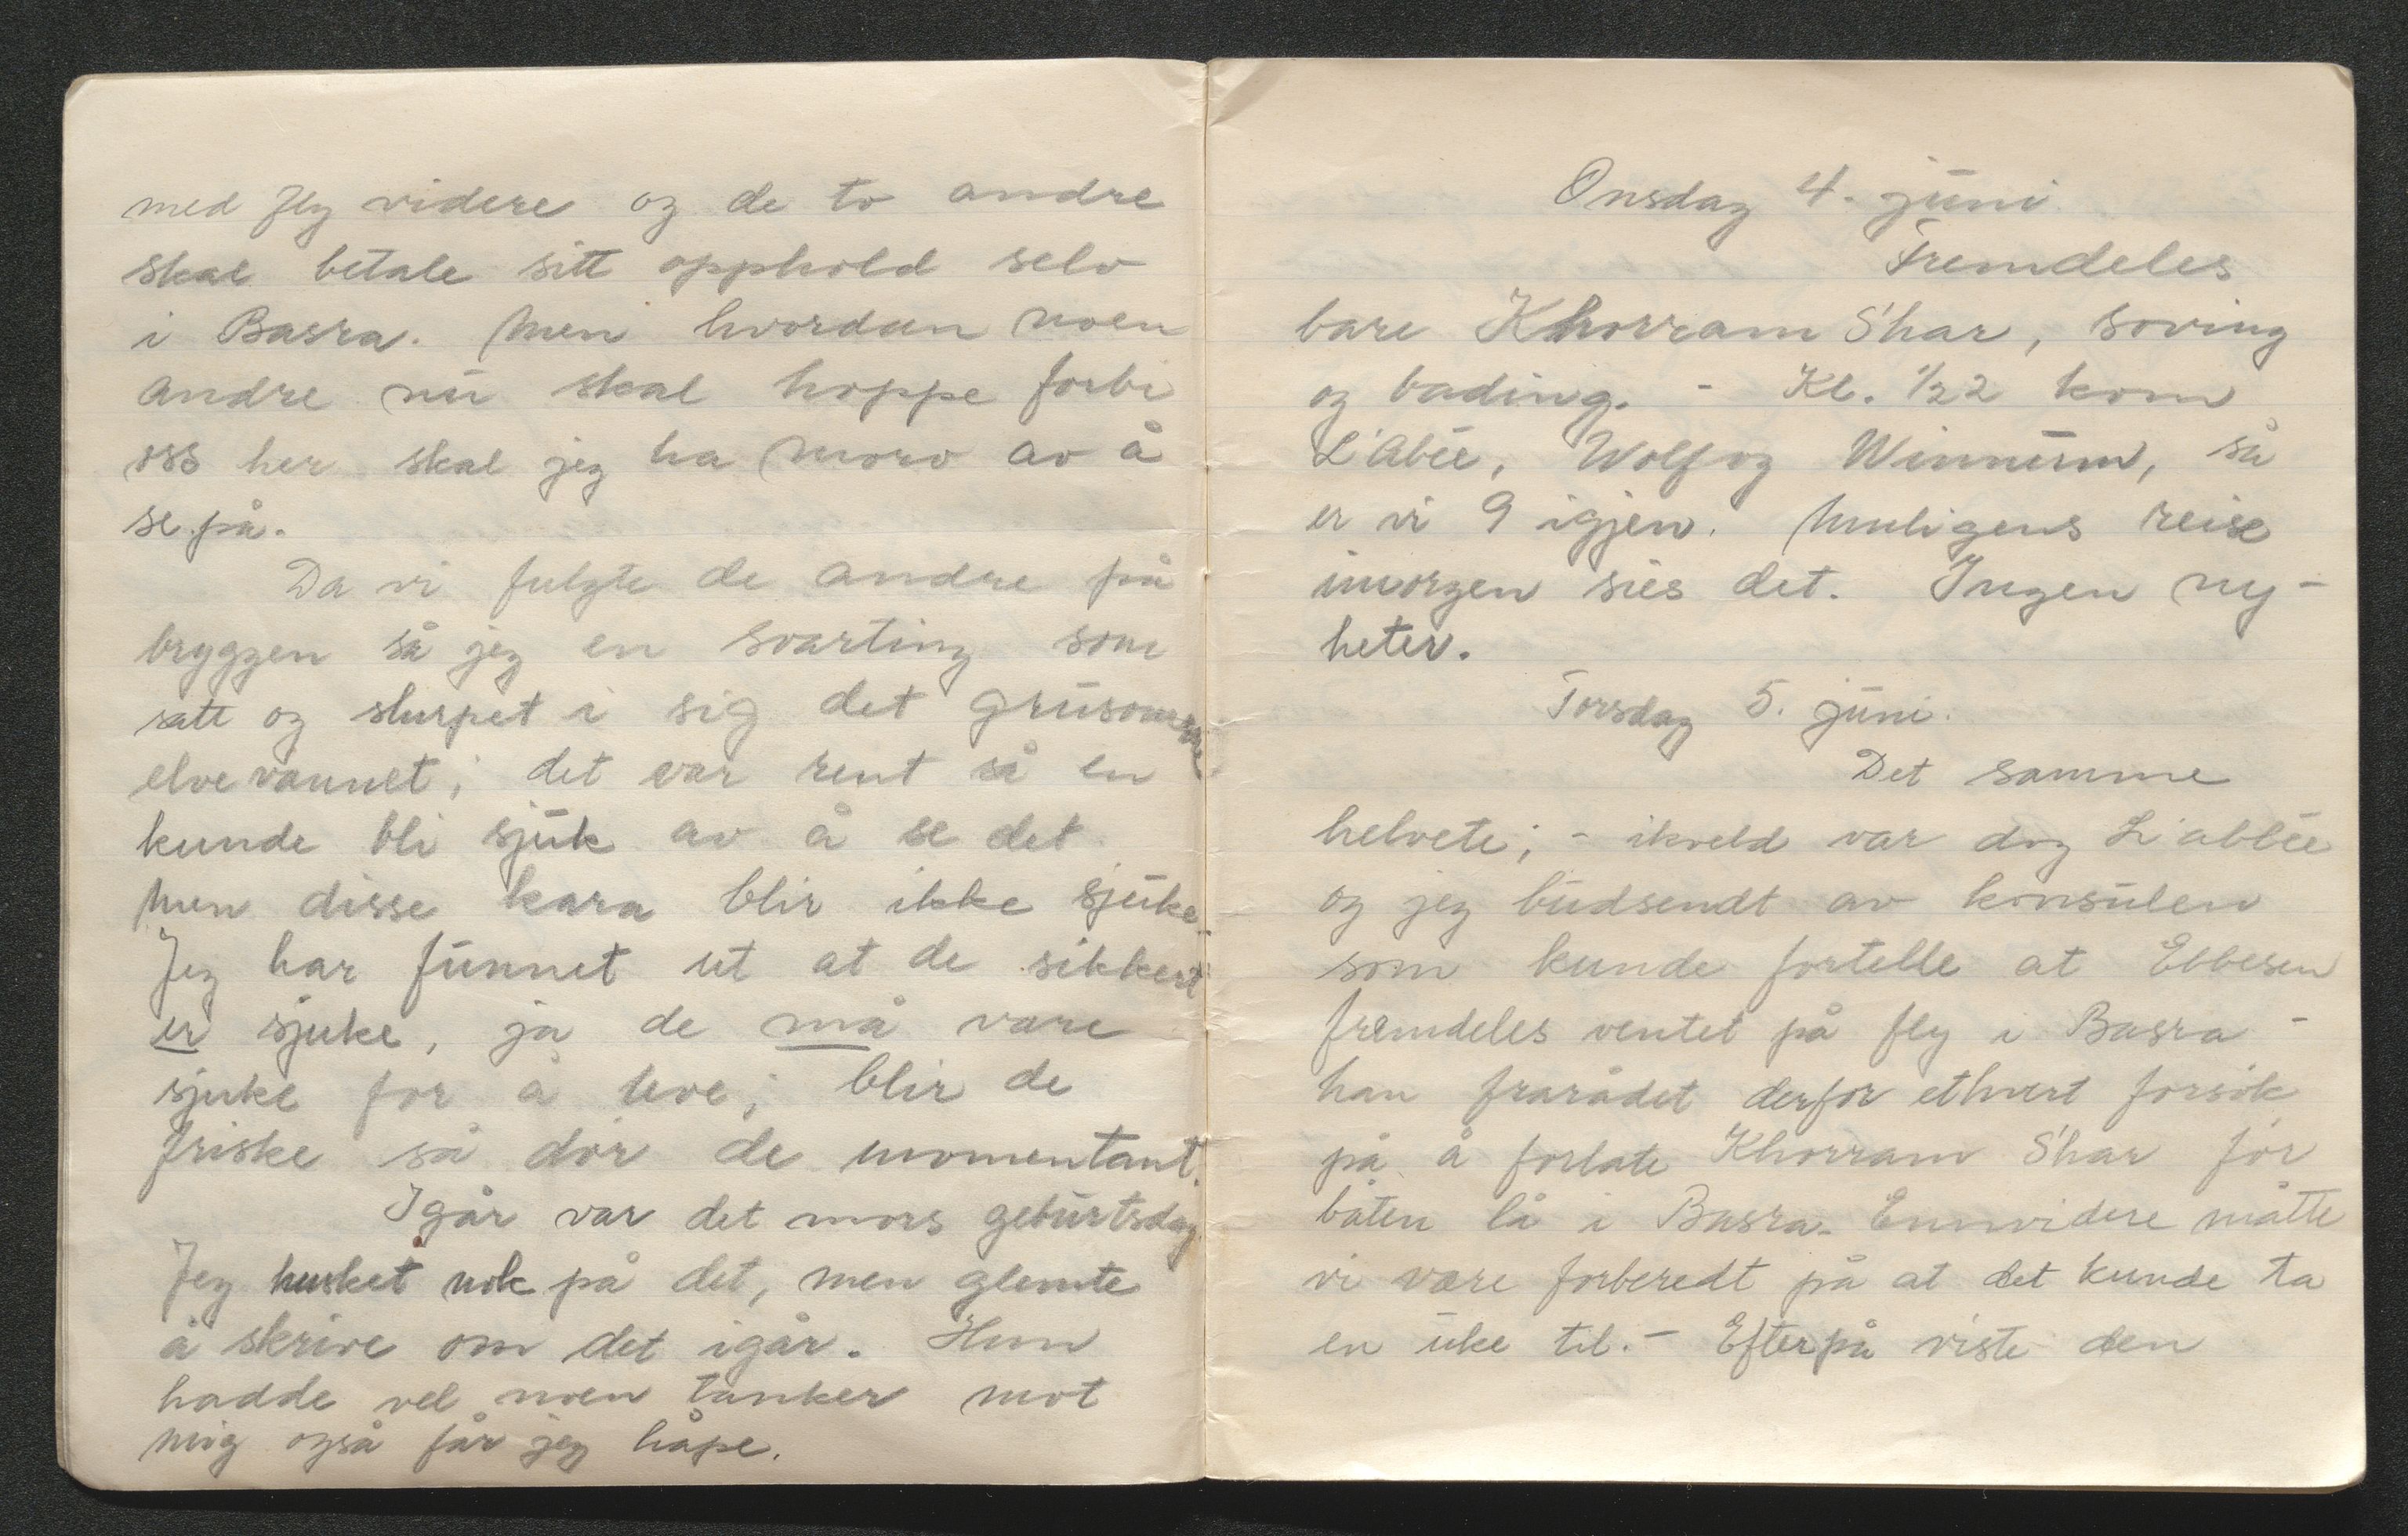 med fly videre og de to andre
skal betale sitt opphold selv
i Basra. Men hvordan noen
andre nu skal hoppe forbi
oss her skal jeg ha moro av å
se på.
Da vi fulgte de andre på
bryggen så jeg en svarting som
satt og slurpet i sig det grusomme
elvevannet; det var rent så en
kunde bli sjuk av å se det
men disse kara blir ikke sjuke.
Jeg har funnet ut at de sikkert
er sjuke, ja de må være
sjuke for å leve; blir de
friske så dør de momentant.
Igår var det mors geburtsdag.
Jeg husket nok på det, men glemte
å skrive om det igår. Hun
hadde vel noen tanker mot
mig også får jeg håpe.
Onsdag 4. juni
Fremdeles
bare Khorram S'har, soving
og bading. - Kl. ½2 kom
L'Abée, Wolf og Winnum, så
er vi 9 igjen. Muligens reise
imorgen sies det. Ingen ny-
heter.
Torsdag 5. juni.
Det samme
helvete; - ikveld var dog L'abbée
og jeg budsendt av konsulen
som kunde fortelle at Ebbesen
fremdeles ventet på fly i Basra -
han frarådet derfor ethvert forsøk
på å forlate Khorram S'har før
båten lå i Basra. Ennvidere måtte
vi være forberedt på at det kunde ta
en uke til. - Efterpå viste den